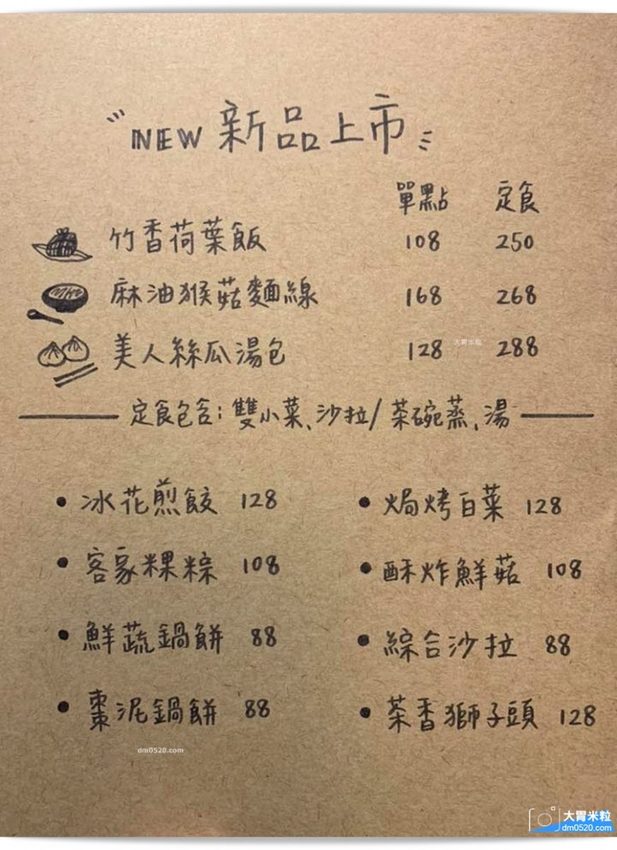 NEW 新品上市
單點 定食
竹香荷葉飯 108 250
麻油猴菇麵線 168 268
大胃米粒
美人絲瓜湯包 128 288
定食包含:雙小菜、沙拉/茶碗蒸、湯
• 冰花煎餃 128 • 焗烤白菜 128
• 客家粿粽 108 • 酥炸鮮菇 108
• 鮮蔬鍋餅 88 • 綜合沙拉 88
• 棗泥鍋餅 88 • 茶香獅子頭 128
dm0520.com
大胃米粒
dm0520.com